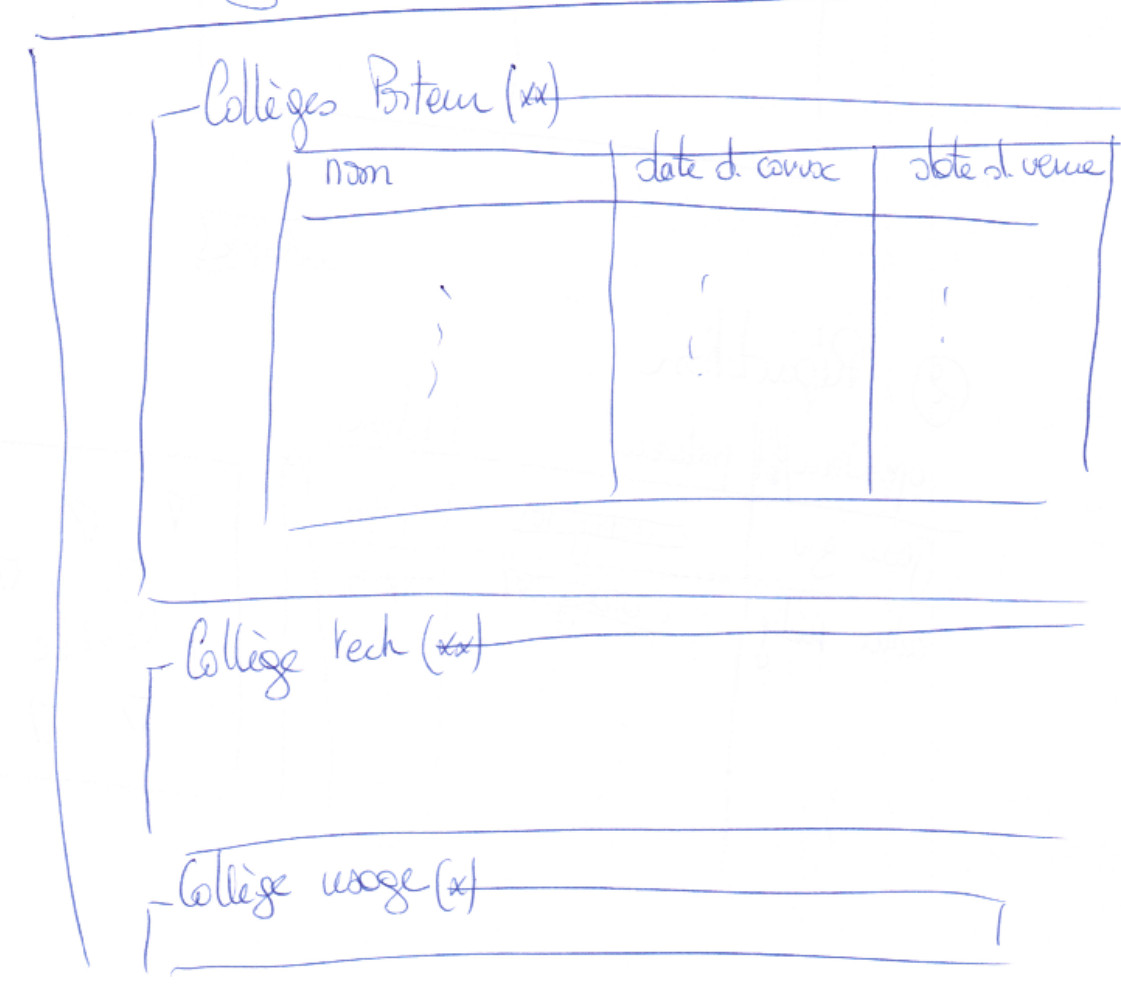 Collèges Porteur (xx)
nom date d. convoc date d. venue
Collège tech (xx)
Collège usage (x)